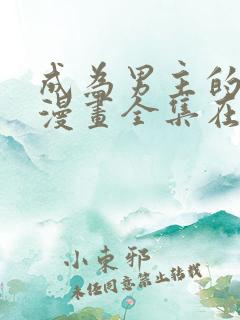 成為男主的
漫畫全集在
小束邪
未經同意禁止轉載